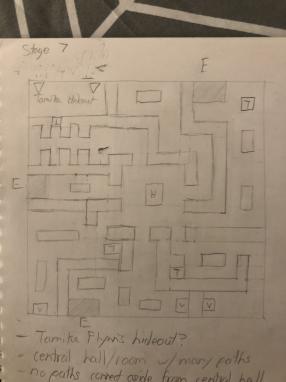 Stage 7
E
Tamika Hideout
E
E
- Tamika Flynn's hideout?
- central hall/room w/ many paths
- no paths connect aside from central hall